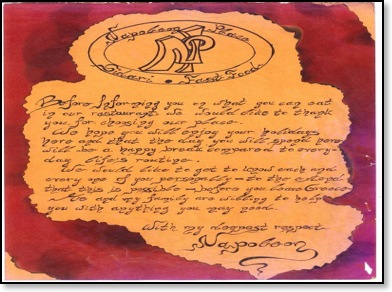 Napoleon Place
NP
Giwari • Fast Food
Before informing you on what you can eat
in our restaurant, we would like to thank
you for choosing our place.
We hope you will enjoy your holidays
here and that the day you will spend here
will be a happy break compared to every-
day life's routine.
We would like to get to know each and
every one of you personally – to the extend
that this is possible – before you leave Greece
Me and my family are willing to help
you with anything you may need.
With my deepest respect
Napoleon